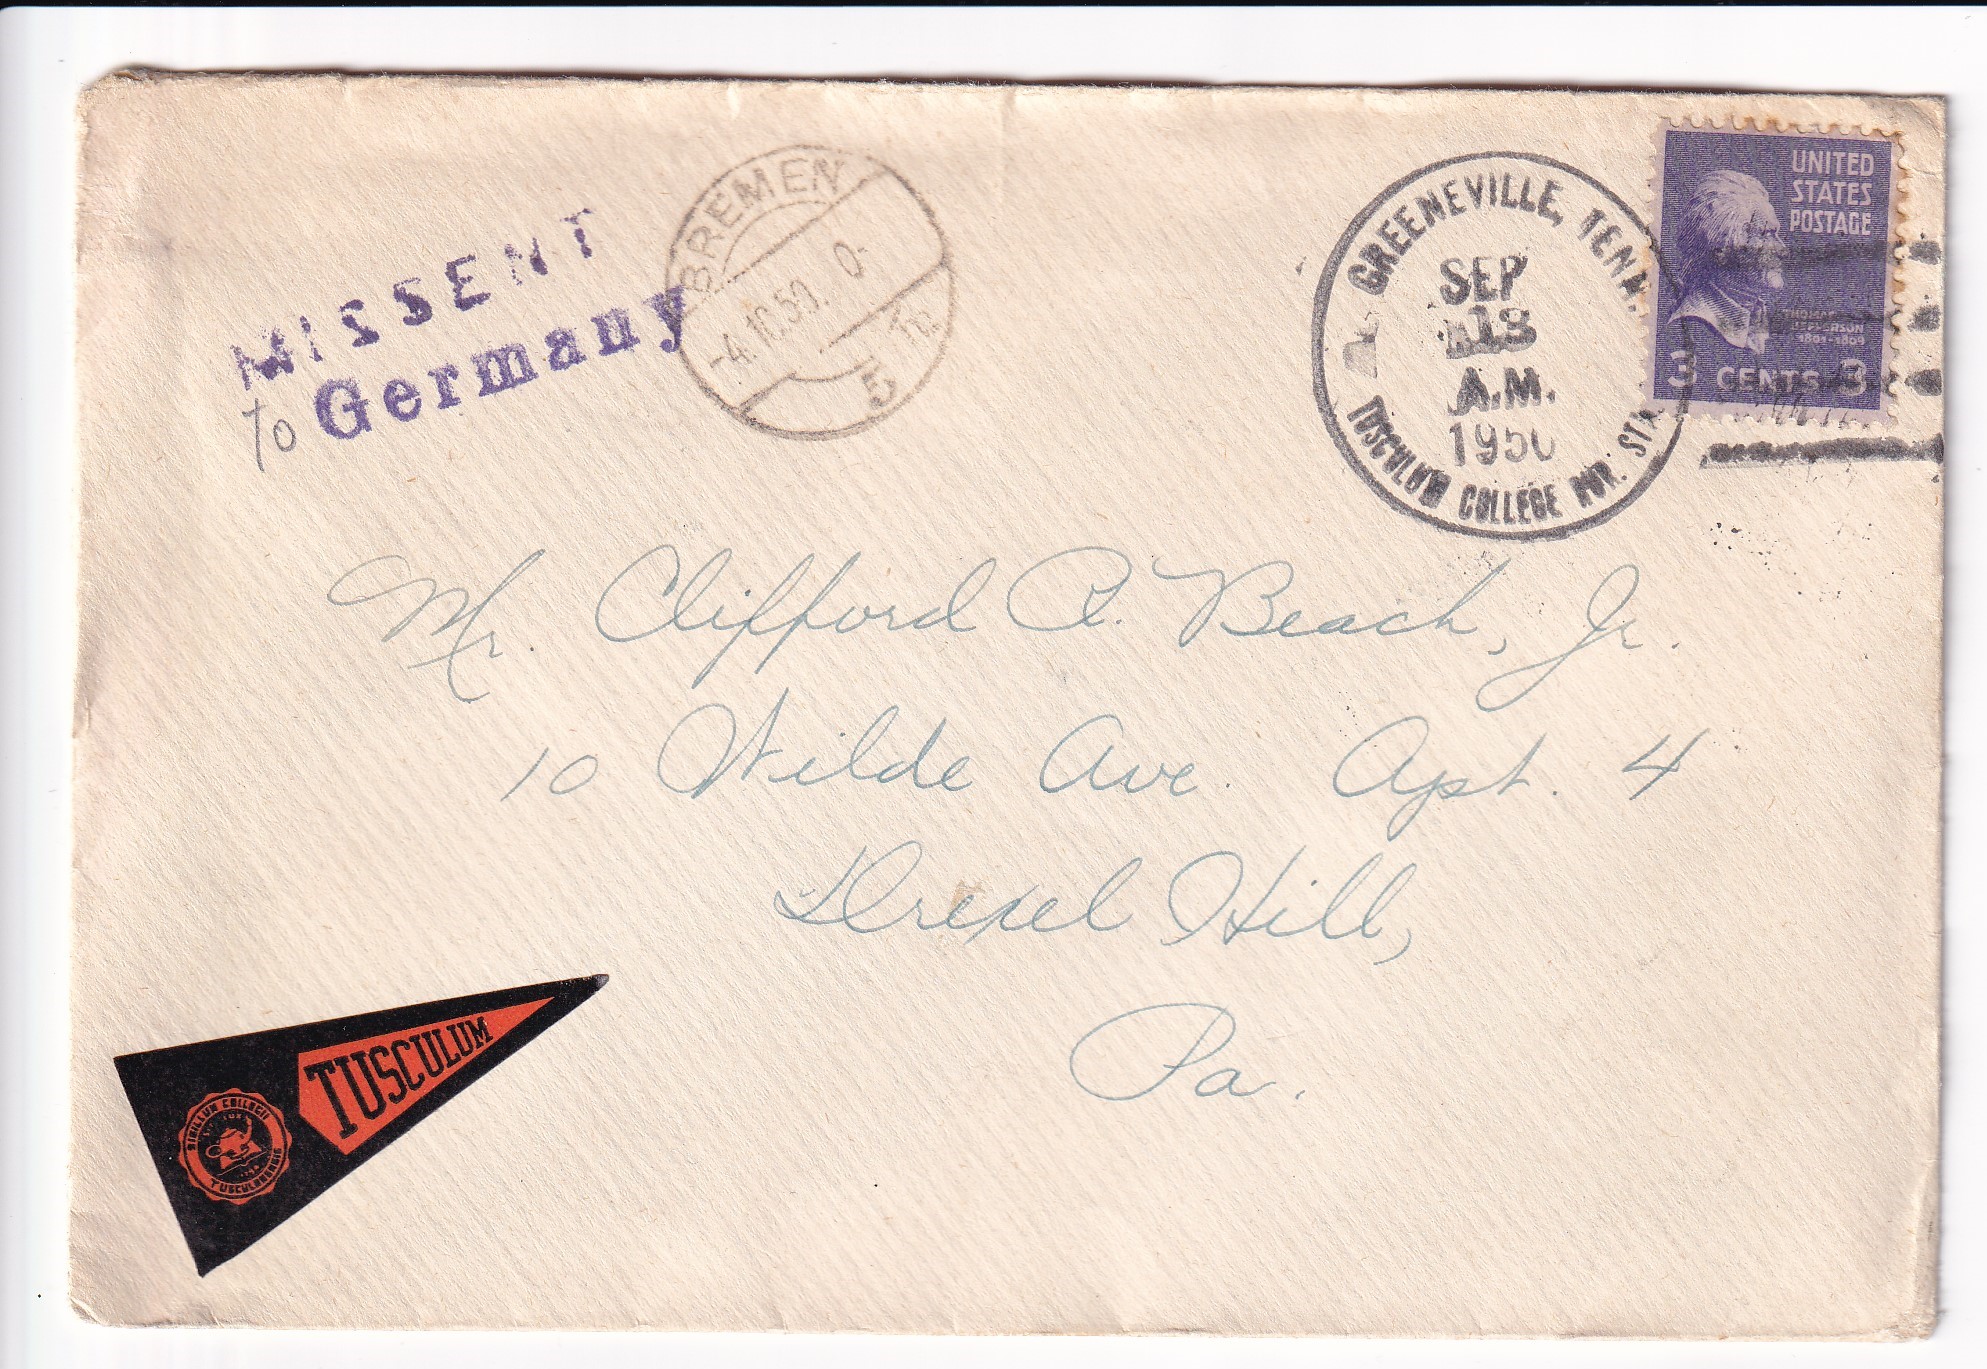 MISSENT
To Germany
BREMEN
-4.10.50. 0-
5
GREENEVILLE, TENN.
SEP
13
A.M.
1950
TUSCULUM COLLEGE RUR. STA.
UNITED
STATES
POSTAGE
THOMAS
JEFFERSON
1801-1809
3 CENTS 3
Mr. Clifford A. Beach, Jr.
10 Wilde Ave. Apt. 4
Drexel Hill,
Pa.
TUSCULUM
SIGILLUM COLLEGII
TUSCULANENSIS